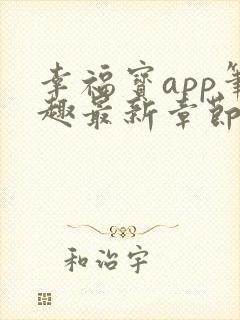 幸福宝app笔
趣最新章节
和治宇